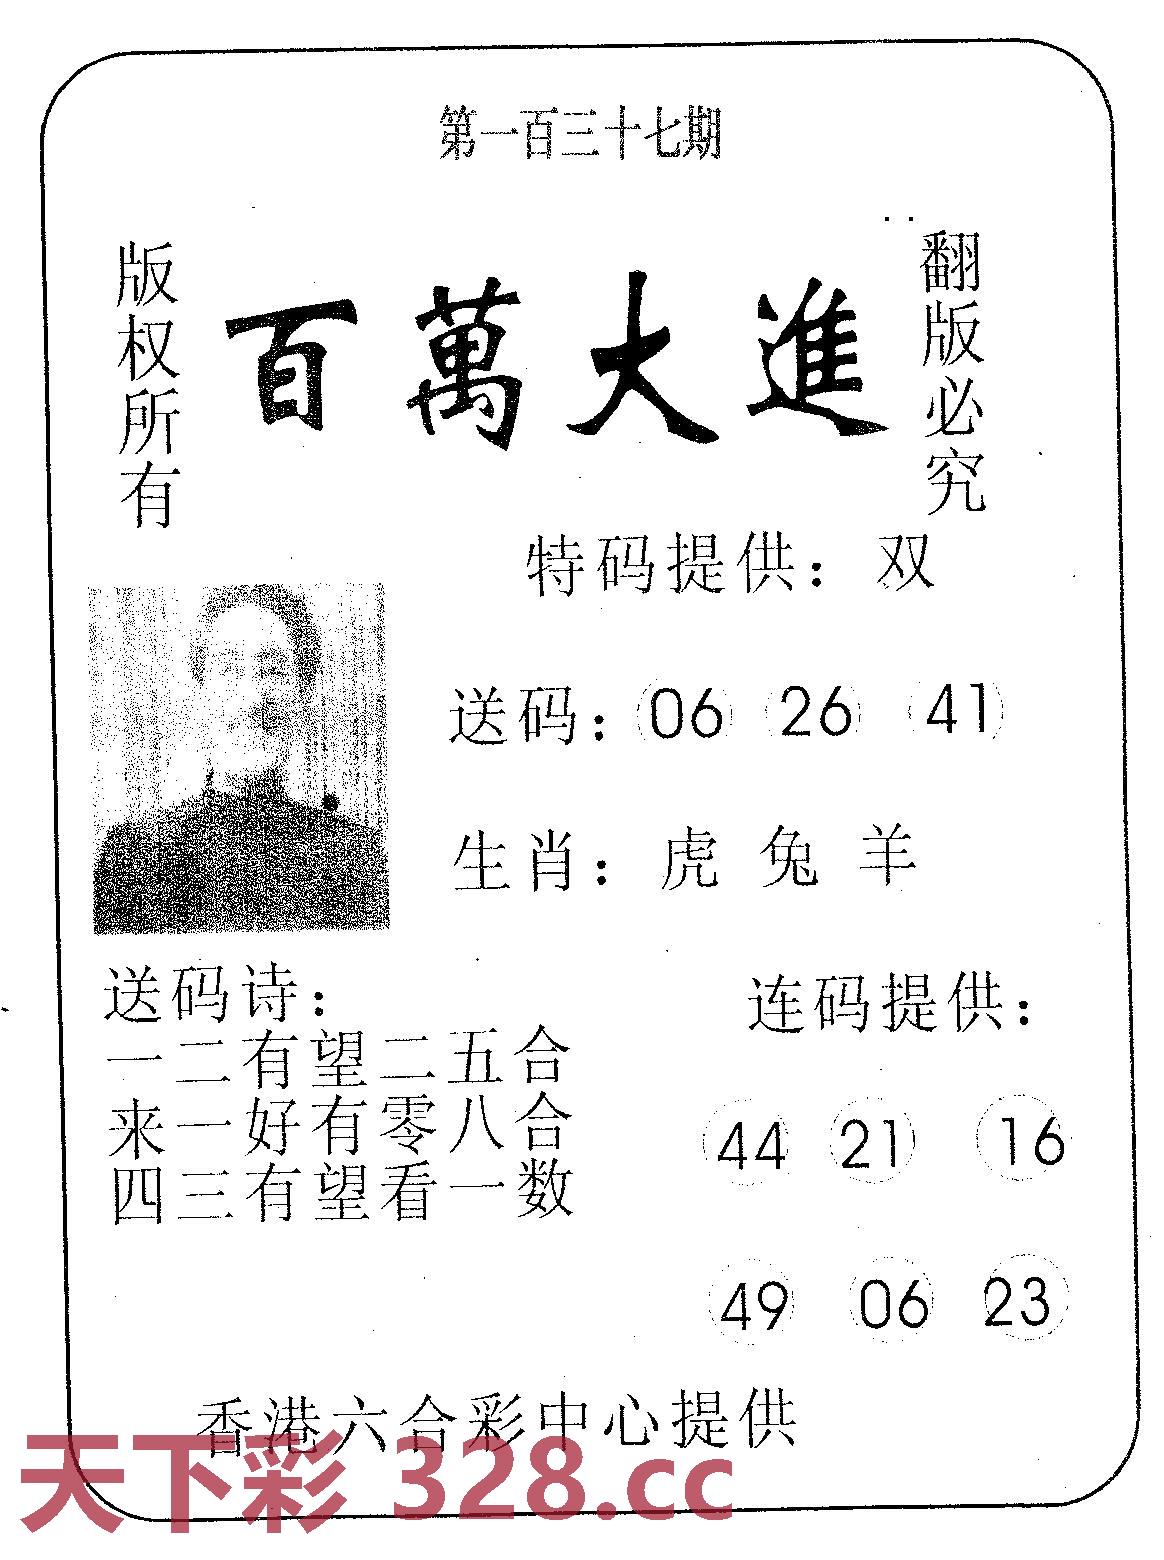 第一百三十七期
版权所有
百萬大進
翻版必究
特码提供：双
送码：06 26 41
生肖：虎 兔 羊
送码诗：
一二有望二五合
来一好有零八合
四三有望看一数
连码提供：
44 21 16
49 06 23
香港六合彩中心提供
天下彩 328.cc